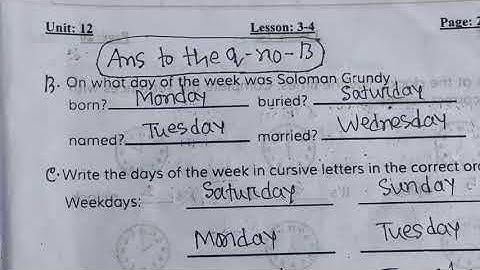 Unit: 12 Lesson: 3-4 Page:
Ans to the q-no-B
B. On what day of the week was Soloman Grundy
born? Monday buried? Saturday
named? Tuesday married? Wednesday
C. Write the days of the week in cursive letters in the correct
Weekdays: Saturday Sunday
Monday Tuesday